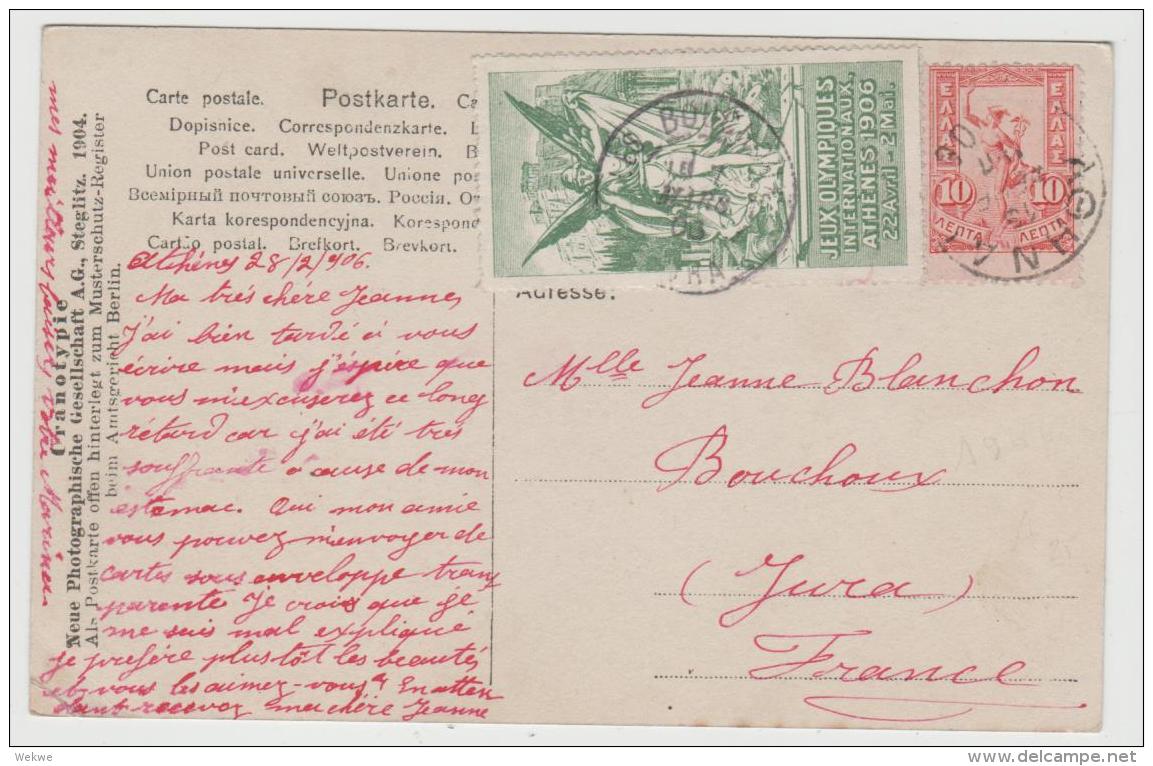 Carte postale. Postkarte. Ca
Dopisnice. Correspondenzkarte. L
Post card. Weltpostverein. B
Union postale universelle. Unione pos
Всемірный почтовый союзъ. Россія. От
Karta korespondencyjna. Korespond
Cartão postal. Brefkort. Brevkort.
JEUX OLYMPIQUES
INTERNATIONAUX,
ATHÈNES 1906
22 Avril - 2 Mai.
ΕΛΛΑΣ ΕΛΛΑΣ
10 10
ΛΕΠΤΑ ΛΕΠΤΑ
Adresse:
Mlle Jeanne Blanchon
Bouchoux
(Jura)
France
Athènes 28/2/906.
Ma très chère Jeanne,
J'ai bien tardé à vous
écrire mais j'éspère que
vous m'excuserez ce long
rétard car j'ai été très
souffrante à cause de mon
estomac. Oui mon amie
vous pouvez m'envoyer de
cartes sous enveloppe trans
parente Je crois que je
me suis mal expliqué
je préfère plustôt les beautés
et vous les aimez-vous? En atten
dant recevez ma chère Jeanne
mes meilleurs baisers votre
Cranotypie
Neue Photographische Gesellschaft A.G., Steglitz. 1904.
Als Postkarte offen hinterlegt zum Musterschutz-Register
beim Amtsgericht Berlin.
Wekwe
delcampe.net